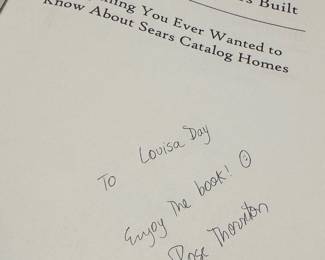 Built
You Ever Wanted to
Know About Sears Catalog Homes
To Louisa Day
Enjoy the book! ☺
Rose Thornton